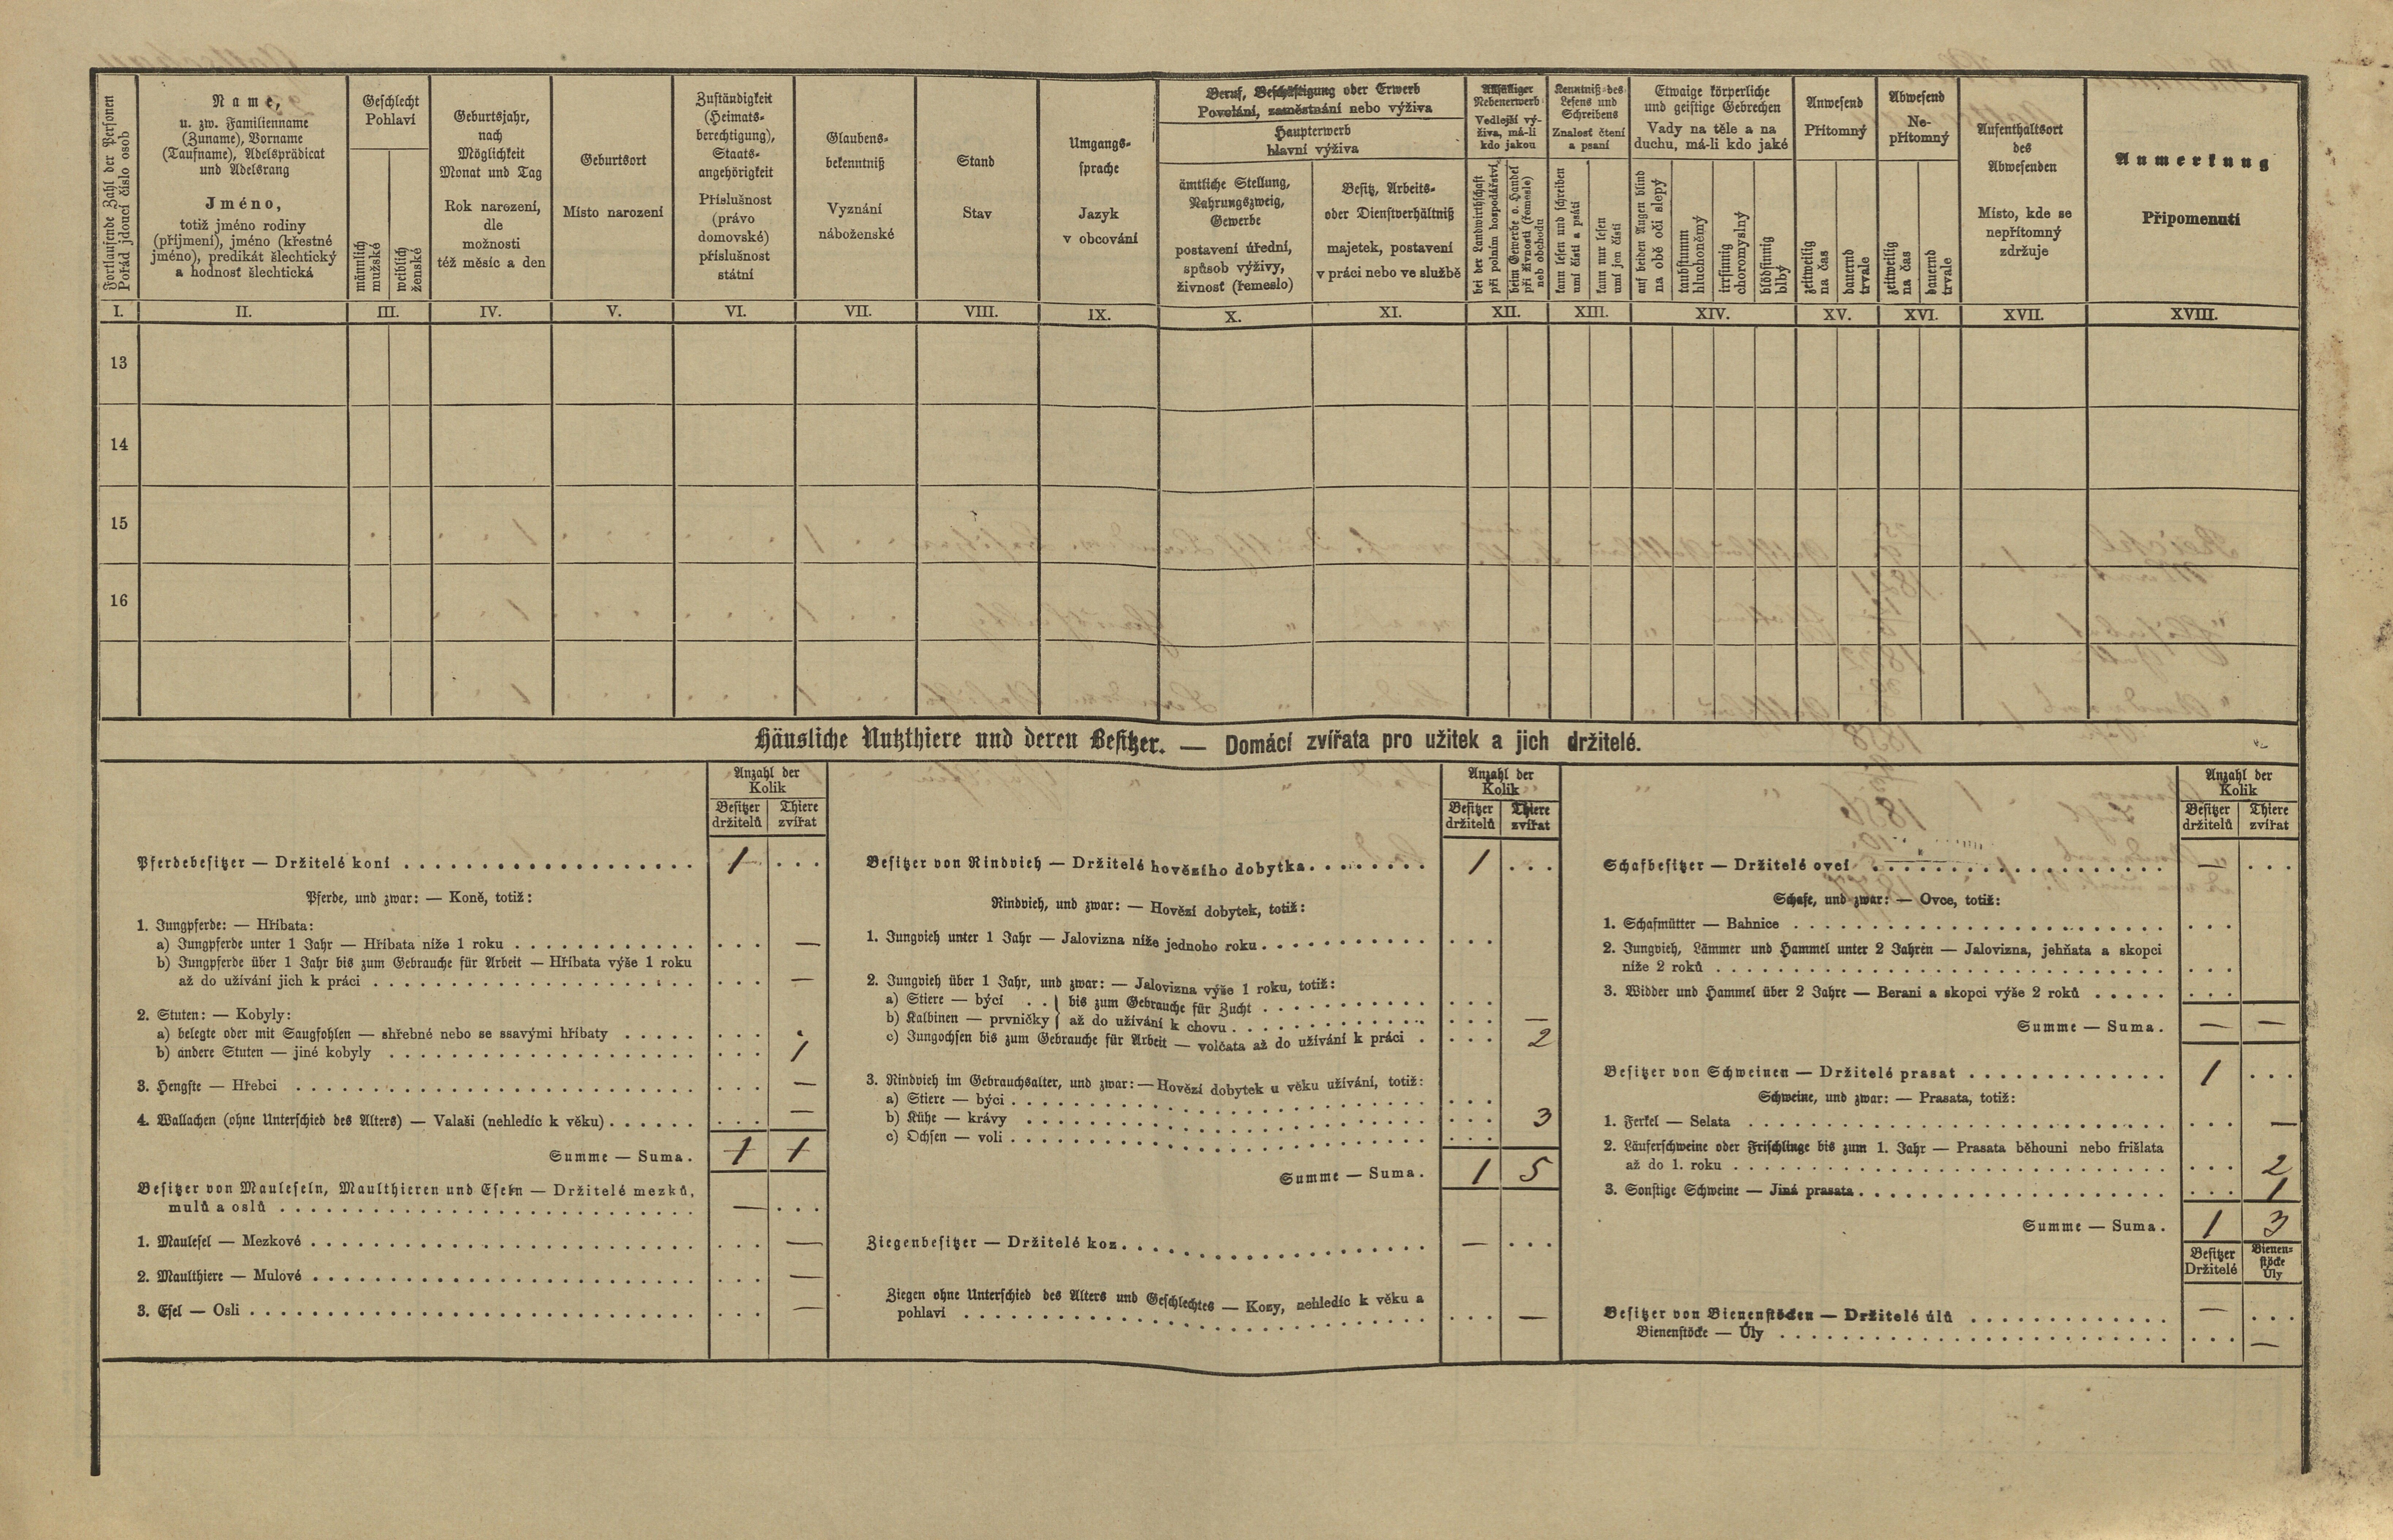 Fortlaufende Zahl der Personen
Pořád jdoucí číslo osob
Name,
u. zw. Familienname
(Zuname), Vorname
(Taufname), Adelsprädicat
und Adelsrang
Jméno,
totiž jméno rodiny
(příjmení), jméno (křestné
jméno), predikát šlechtický
a hodnost šlechtická
Geschlecht
Pohlaví
männlich
mužské
weiblich
ženské
Geburtsjahr,
nach
Möglichkeit
Monat und Tag
Rok narození,
dle
možnosti
též měsíc a den
Geburtsort
Místo narození
Zuständigkeit
(Heimats-
berechtigung),
Staats-
angehörigkeit
Příslušnost
(právo
domovské)
příslušnost
státní
Glaubens-
bekenntniß
Vyznání
náboženské
Stand
Stav
Umgangs-
sprache
Jazyk
v obcování
Beruf, Beschäftigung oder Erwerb
Povolání, zaměstnání nebo výživa
Haupterwerb
hlavní výživa
ämtliche Stellung,
Nahrungszweig,
Gewerbe
postavení úřední,
spůsob výživy,
živnosť (řemeslo)
Besitz, Arbeits-
oder Dienstverhältniß
majetek, postavení
v práci nebo ve službě
Allfälliger
Nebenerwerb
Vedlejší vý-
živa, má-li
kdo jakou
bei der Landwirthschaft
při polním hospodářství
beim Gewerbe o. Handel
při živnosti (řemesle)
neb obchodu
Kenntniß des
Lesens und
Schreibens
Znalosť čtení
a psaní
kann lesen und schreiben
umí čísti a psáti
kann nur lesen
umí jen čísti
Etwaige körperliche
und geistige Gebrechen
Vady na těle a na
duchu, má-li kdo jaké
auf beiden Augen blind
na obě oči slepý
taubstumm
hluchoněmý
irrsinnig
choromyslný
blödsinnig
blbý
Anwesend
Přítomný
zeitweilig
na čas
dauernd
trvale
Abwesend
Ne-
přítomný
zeitweilig
na čas
dauernd
trvale
Aufenthaltsort
des
Abwesenden
Místo, kde se
nepřítomný
zdržuje
Anmerkung
Připomenutí
I. II. III. IV. V. VI. VII. VIII. IX. X. XI. XII. XIII. XIV. XV. XVI. XVII. XVIII.
13
14
15
16
Häusliche Nutzthiere und deren Besitzer. — Domácí zvířata pro užitek a jich držitelé.
Anzahl der
Kolik
Besitzer Thiere
držitelů zvířat
Pferdebesitzer — Držitelé koní . . . 1 . . .
Pferde, und zwar: — Koně, totiž:
1. Jungpferde: — Hříbata:
a) Jungpferde unter 1 Jahr — Hříbata níže 1 roku . . . —
b) Jungpferde über 1 Jahr bis zum Gebrauche für Arbeit — Hříbata výše 1 roku
až do užívání jich k práci . . . —
2. Stuten: — Kobyly:
a) belegte oder mit Saugfohlen — shřebné nebo se ssavými hříbaty . . .
b) andere Stuten — jiné kobyly . . . 1
3. Hengste — Hřebci . . . —
4. Wallachen (ohne Unterschied des Alters) — Valaši (nehledíc k věku) . . . —
Summe — Suma. 1 1
Besitzer von Mauleseln, Maulthieren und Eseln — Držitelé mezků,
mulů a oslů . . . — . . .
1. Maulesel — Mezkové . . . —
2. Maulthiere — Mulové . . . —
3. Esel — Osli . . . —
Anzahl der
Kolik
Besitzer Thiere
držitelů zvířat
Besitzer von Rindvieh — Držitelé hovězího dobytka . . . 1 . . .
Rindvieh, und zwar: — Hovězí dobytek, totiž:
1. Jungvieh unter 1 Jahr — Jalovizna níže jednoho roku . . .
2. Jungvieh über 1 Jahr, und zwar: — Jalovizna výše 1 roku, totiž:
a) Stiere — býci . . } bis zum Gebrauche für Zucht . . .
b) Kalbinen — prvničky } až do užívání k chovu . . . —
c) Jungochsen bis zum Gebrauche für Arbeit — volčata až do užívání k práci . . . . 2
3. Rindvieh im Gebrauchsalter, und zwar: — Hovězí dobytek u věku užívání, totiž:
a) Stiere — býci . . .
b) Kühe — krávy . . . 3
c) Ochsen — voli . . .
Summe — Suma. 1 5
Ziegenbesitzer — Držitelé koz . . . — . . .
Ziegen ohne Unterschied des Alters und Geschlechtes — Kozy, nehledíc k věku a
pohlaví . . . —
Anzahl der
Kolik
Besitzer Thiere
držitelů zvířat
Schafbesitzer — Držitelé ovcí . . . — . . .
Schafe, und zwar: — Ovce, totiž:
1. Schafmütter — Bahnice . . .
2. Jungvieh, Lämmer und Hammel unter 2 Jahren — Jalovizna, jehňata a skopci
níže 2 roků . . .
3. Widder und Hammel über 2 Jahre — Berani a skopci výše 2 roků . . .
Summe — Suma. — —
Besitzer von Schweinen — Držitelé prasat . . . 1 . . .
Schweine, und zwar: — Prasata, totiž:
1. Ferkel — Selata . . . —
2. Läuferschweine oder Frischlinge bis zum 1. Jahr — Prasata běhouni nebo frišlata
až do 1. roku . . . 2
3. Sonstige Schweine — Jiná prasata . . . 1
Summe — Suma. 1 3
Besitzer
Držitelé
Bienen-
stöcke
Úly
Besitzer von Bienenstöcken — Držitelé úlů . . . — . . .
Bienenstöcke — Úly . . . —